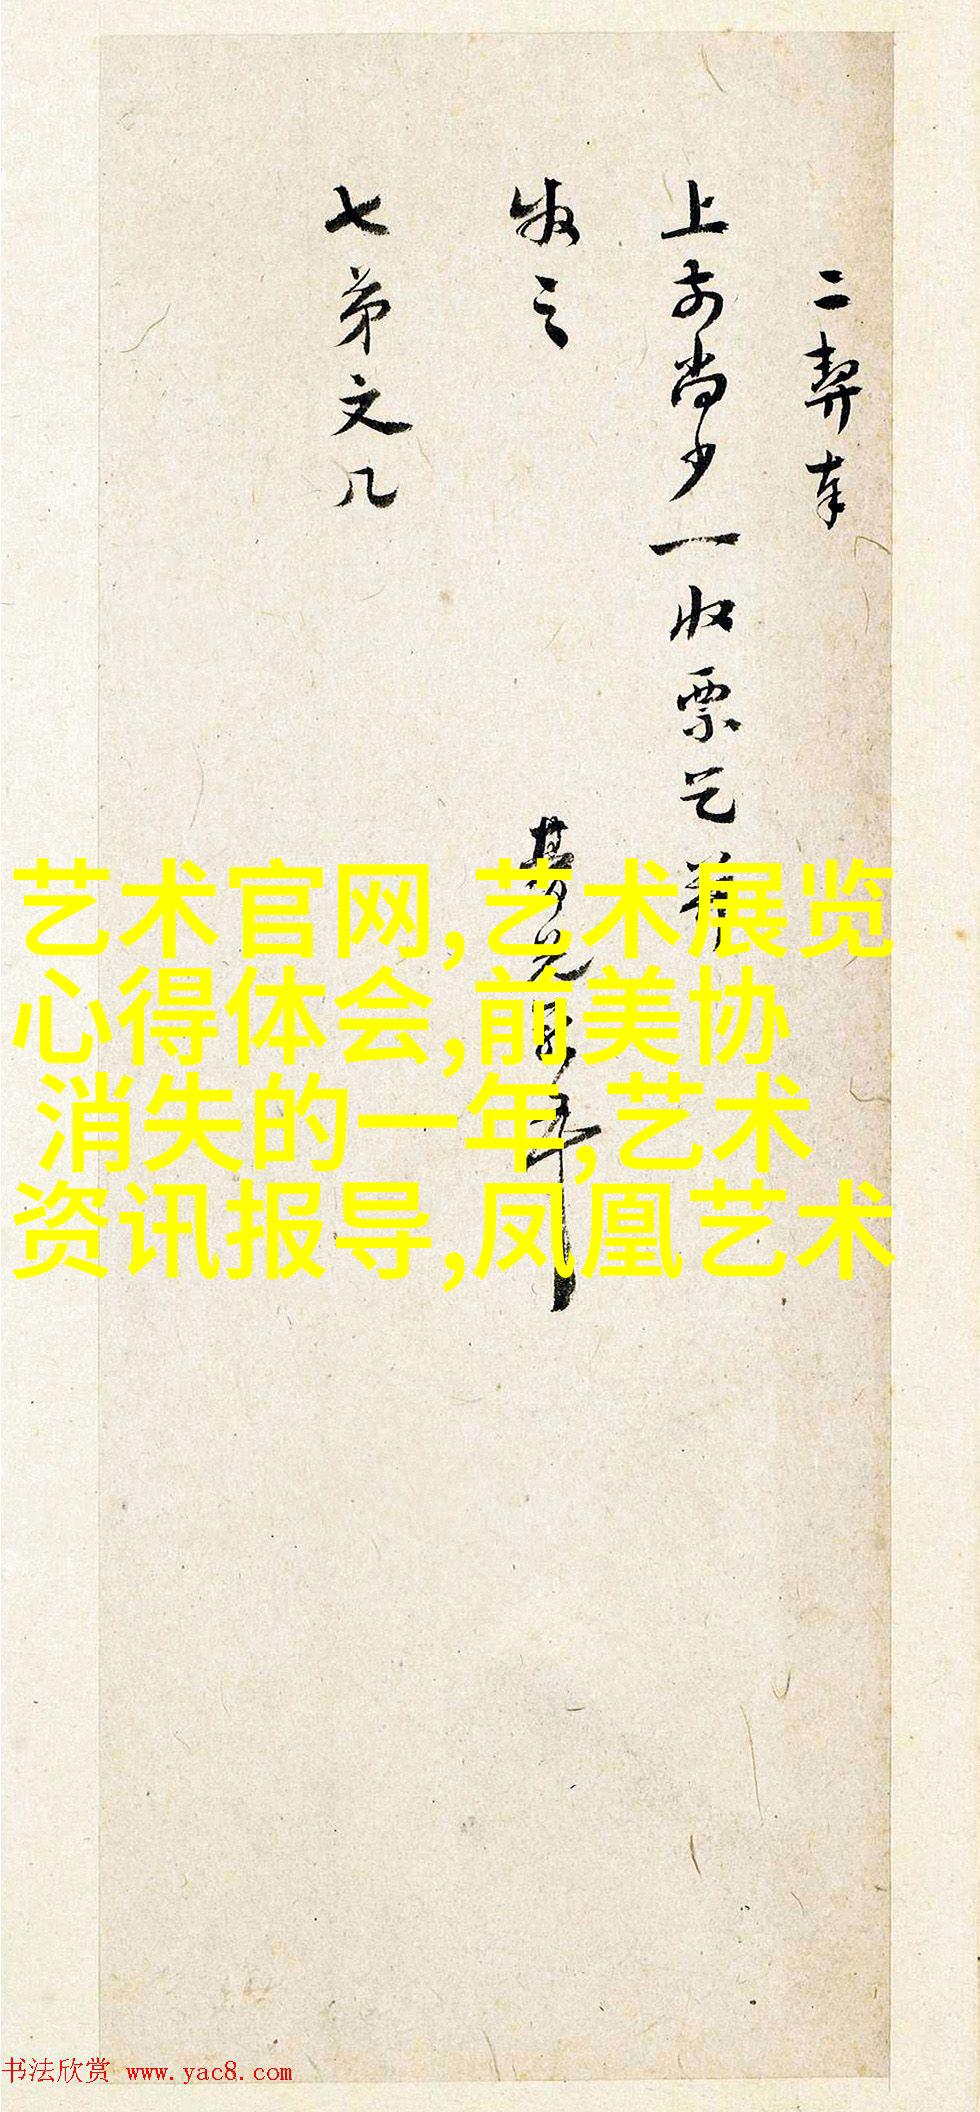 二契奉
上前尚少一收票乞并
发之
七弟文几
艺术官网,艺术展览
心得体会,前美协
消失的一年,艺术
资讯报导,凤凰艺术
书法欣赏 www.yac8.com